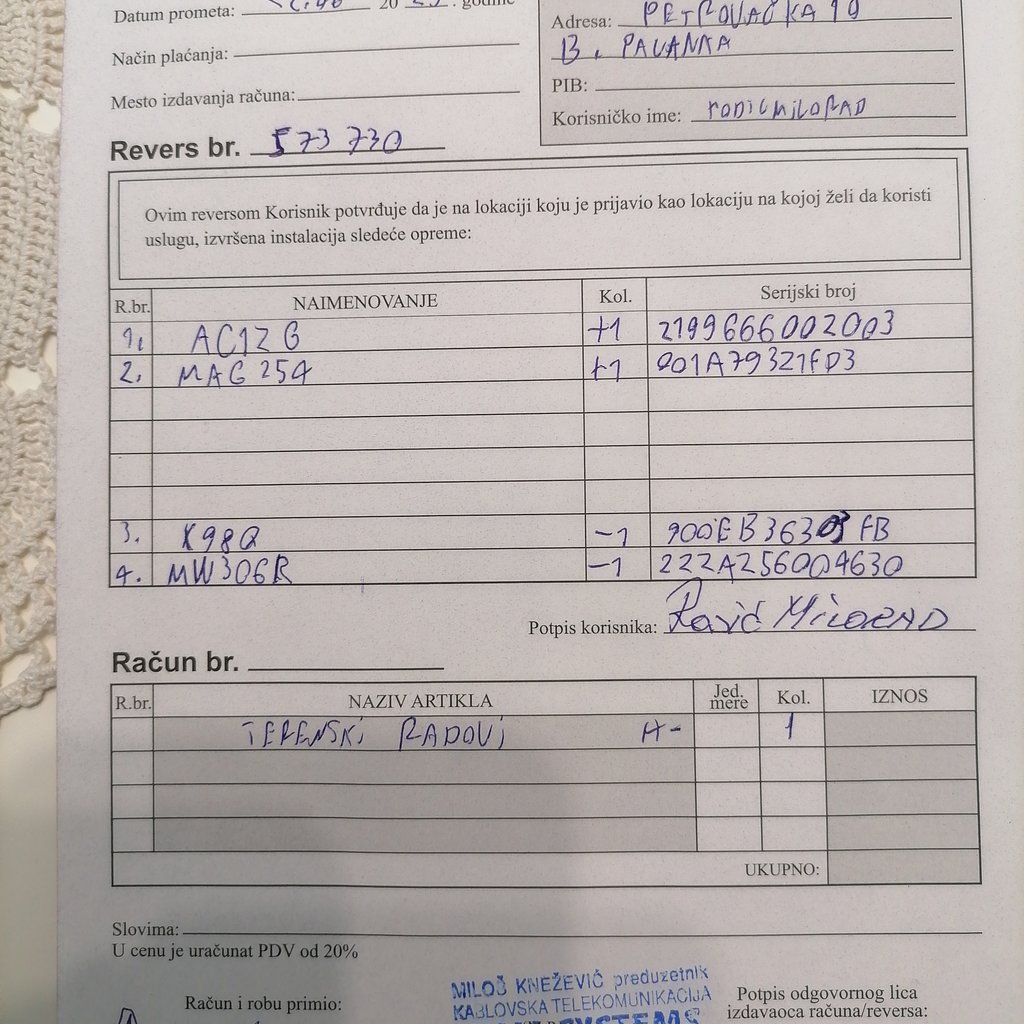 Datum prometa: 20 23. godine
Način plaćanja:
Mesto izdavanja računa:
Adresa: PETROVAČKA 19
B. PALANKA
PIB:
Korisničko ime: rodicmilorad
Revers br. 573 730
Ovim reversom Korisnik potvrđuje da je na lokaciji koju je prijavio kao lokaciju na kojoj želi da koristi
uslugu, izvršena instalacija sledeće opreme:
R.br. NAIMENOVANJE Kol. Serijski broj
1. AC12G +1 2199666002003
2. MAG 254 +1 001A79321FD3
3. K98Q -1 900EB36303FB
4. MW306R -1 222A256004630
Potpis korisnika: Milorad
Račun br.
R.br. NAZIV ARTIKLA Jed. mere Kol. IZNOS
TERENSKI RADOVI H- 1
UKUPNO:
Slovima:
U cenu je uračunat PDV od 20%
Račun i robu primio:
MILOŠ KNEŽEVIĆ preduzetnik
KABLOVSKA TELEKOMUNIKACIJA
SYSTEMS
Potpis odgovornog lica
izdavaoca računa/reversa: